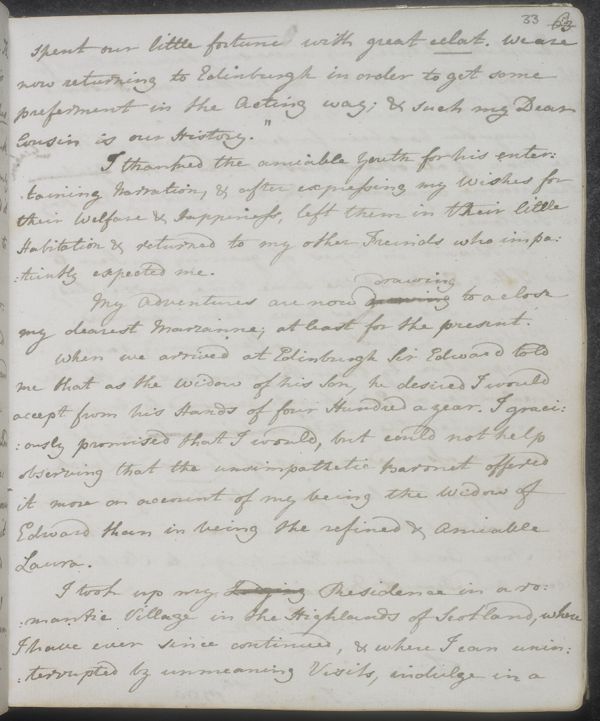 33 63
spent our little fortune with great eclat. We are
now returning to Edinburgh in order to get some
preferment in the Acting way; & such my Dear
Cousin is our History."
I thanked the amiable Youth for his enter:
:taining Narration, & after expressing my Wishes for
their Welfare & Happiness, left them in their little
Habitation & returned to my other Freinds who impa:
:tiently expected me.
drawing
My Adventures are now to a close
my dearest Marianne; at least for the present.
When we arrived at Edinburgh Sir Edward told
me that as the Widow of his Son, he desired I would
accept from his Hands of four Hundred a year. I graci:
:ously promised that I would, but could not help
observing that the unsimpathetic Baronet offered
it more on account of my being the Widow of
Edward than in being the refined & Amiable
Laura.
I took up my Lodging Residence in a ro:
:mantic Village in the Highlands of Scotland, where
I have ever since continued, & where I can unin:
:terrupted by unmeaning Visits, indulge in a